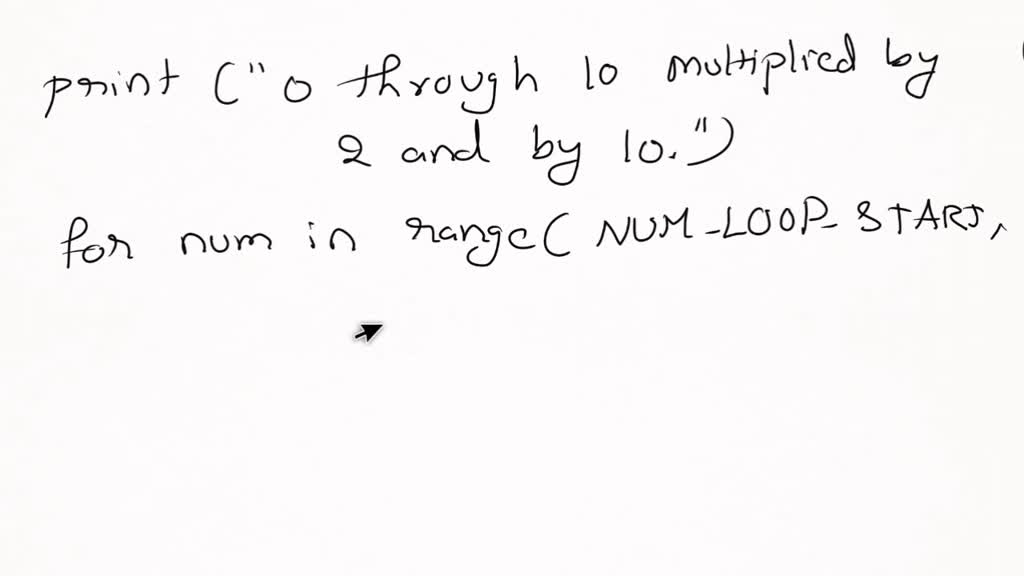 print ("0 through 10 multiplied by
2 and by 10.")
for num in range( NUM_LOOP_START,